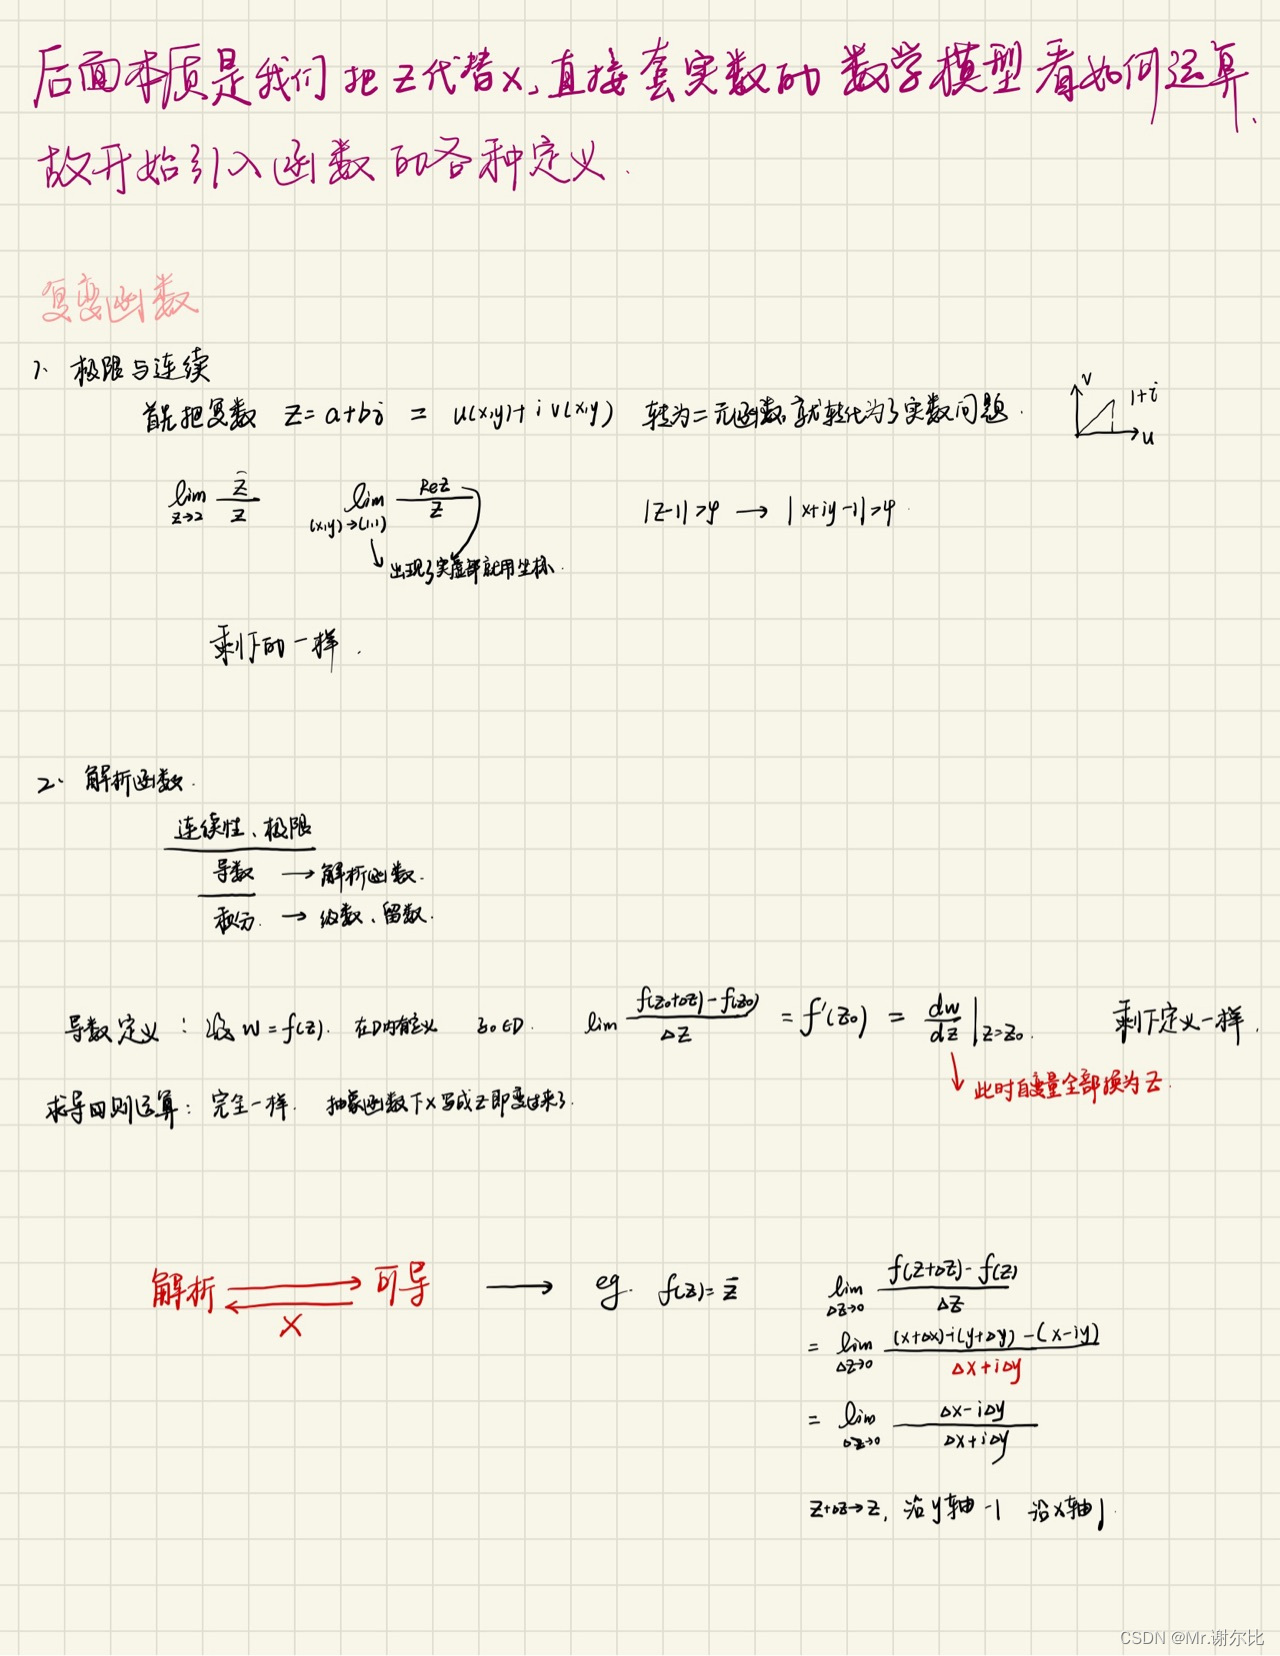 后面本质是我们把z代替x,直接套实数的数学模型看如何运算.
故开始引入函数的各种定义.
复变函数
1、极限与连续
首先把复数 z=a+bi = u(x,y)+iv(x,y) 转为二元函数,就转化为了实数问题.
v
1+i
u
lim z→2 z̄/z lim (x,y)→(1,1) Rez/z |z-1|>4 → |x+iy-1|>4.
↳出现了实虚部就用坐标.
剩下的一样.
2、解析函数.
连续性、极限
导数 → 解析函数.
积分. → 级数、留数.
导数定义:设w=f(z).在D内有定义 z₀∈D. lim f(z₀+Δz)-f(z₀)/Δz = f'(z₀) = dw/dz|z=z₀. 剩下定义一样.
↓此时自变量全部换为z.
求导四则运算:完全一样. 抽象函数下x写成z即变过来了.
解析 ⇄ 可导 → eg. f(z)=z̄ lim Δz→0 f(z+Δz)-f(z)/Δz
X
= lim Δz→0 (x+Δx)-i(y+Δy)-(x-iy)/Δx+iΔy
= lim Δz→0 Δx-iΔy/Δx+iΔy
z+Δz→z, 沿y轴-1 沿x轴1.
CSDN @Mr.谢尔比